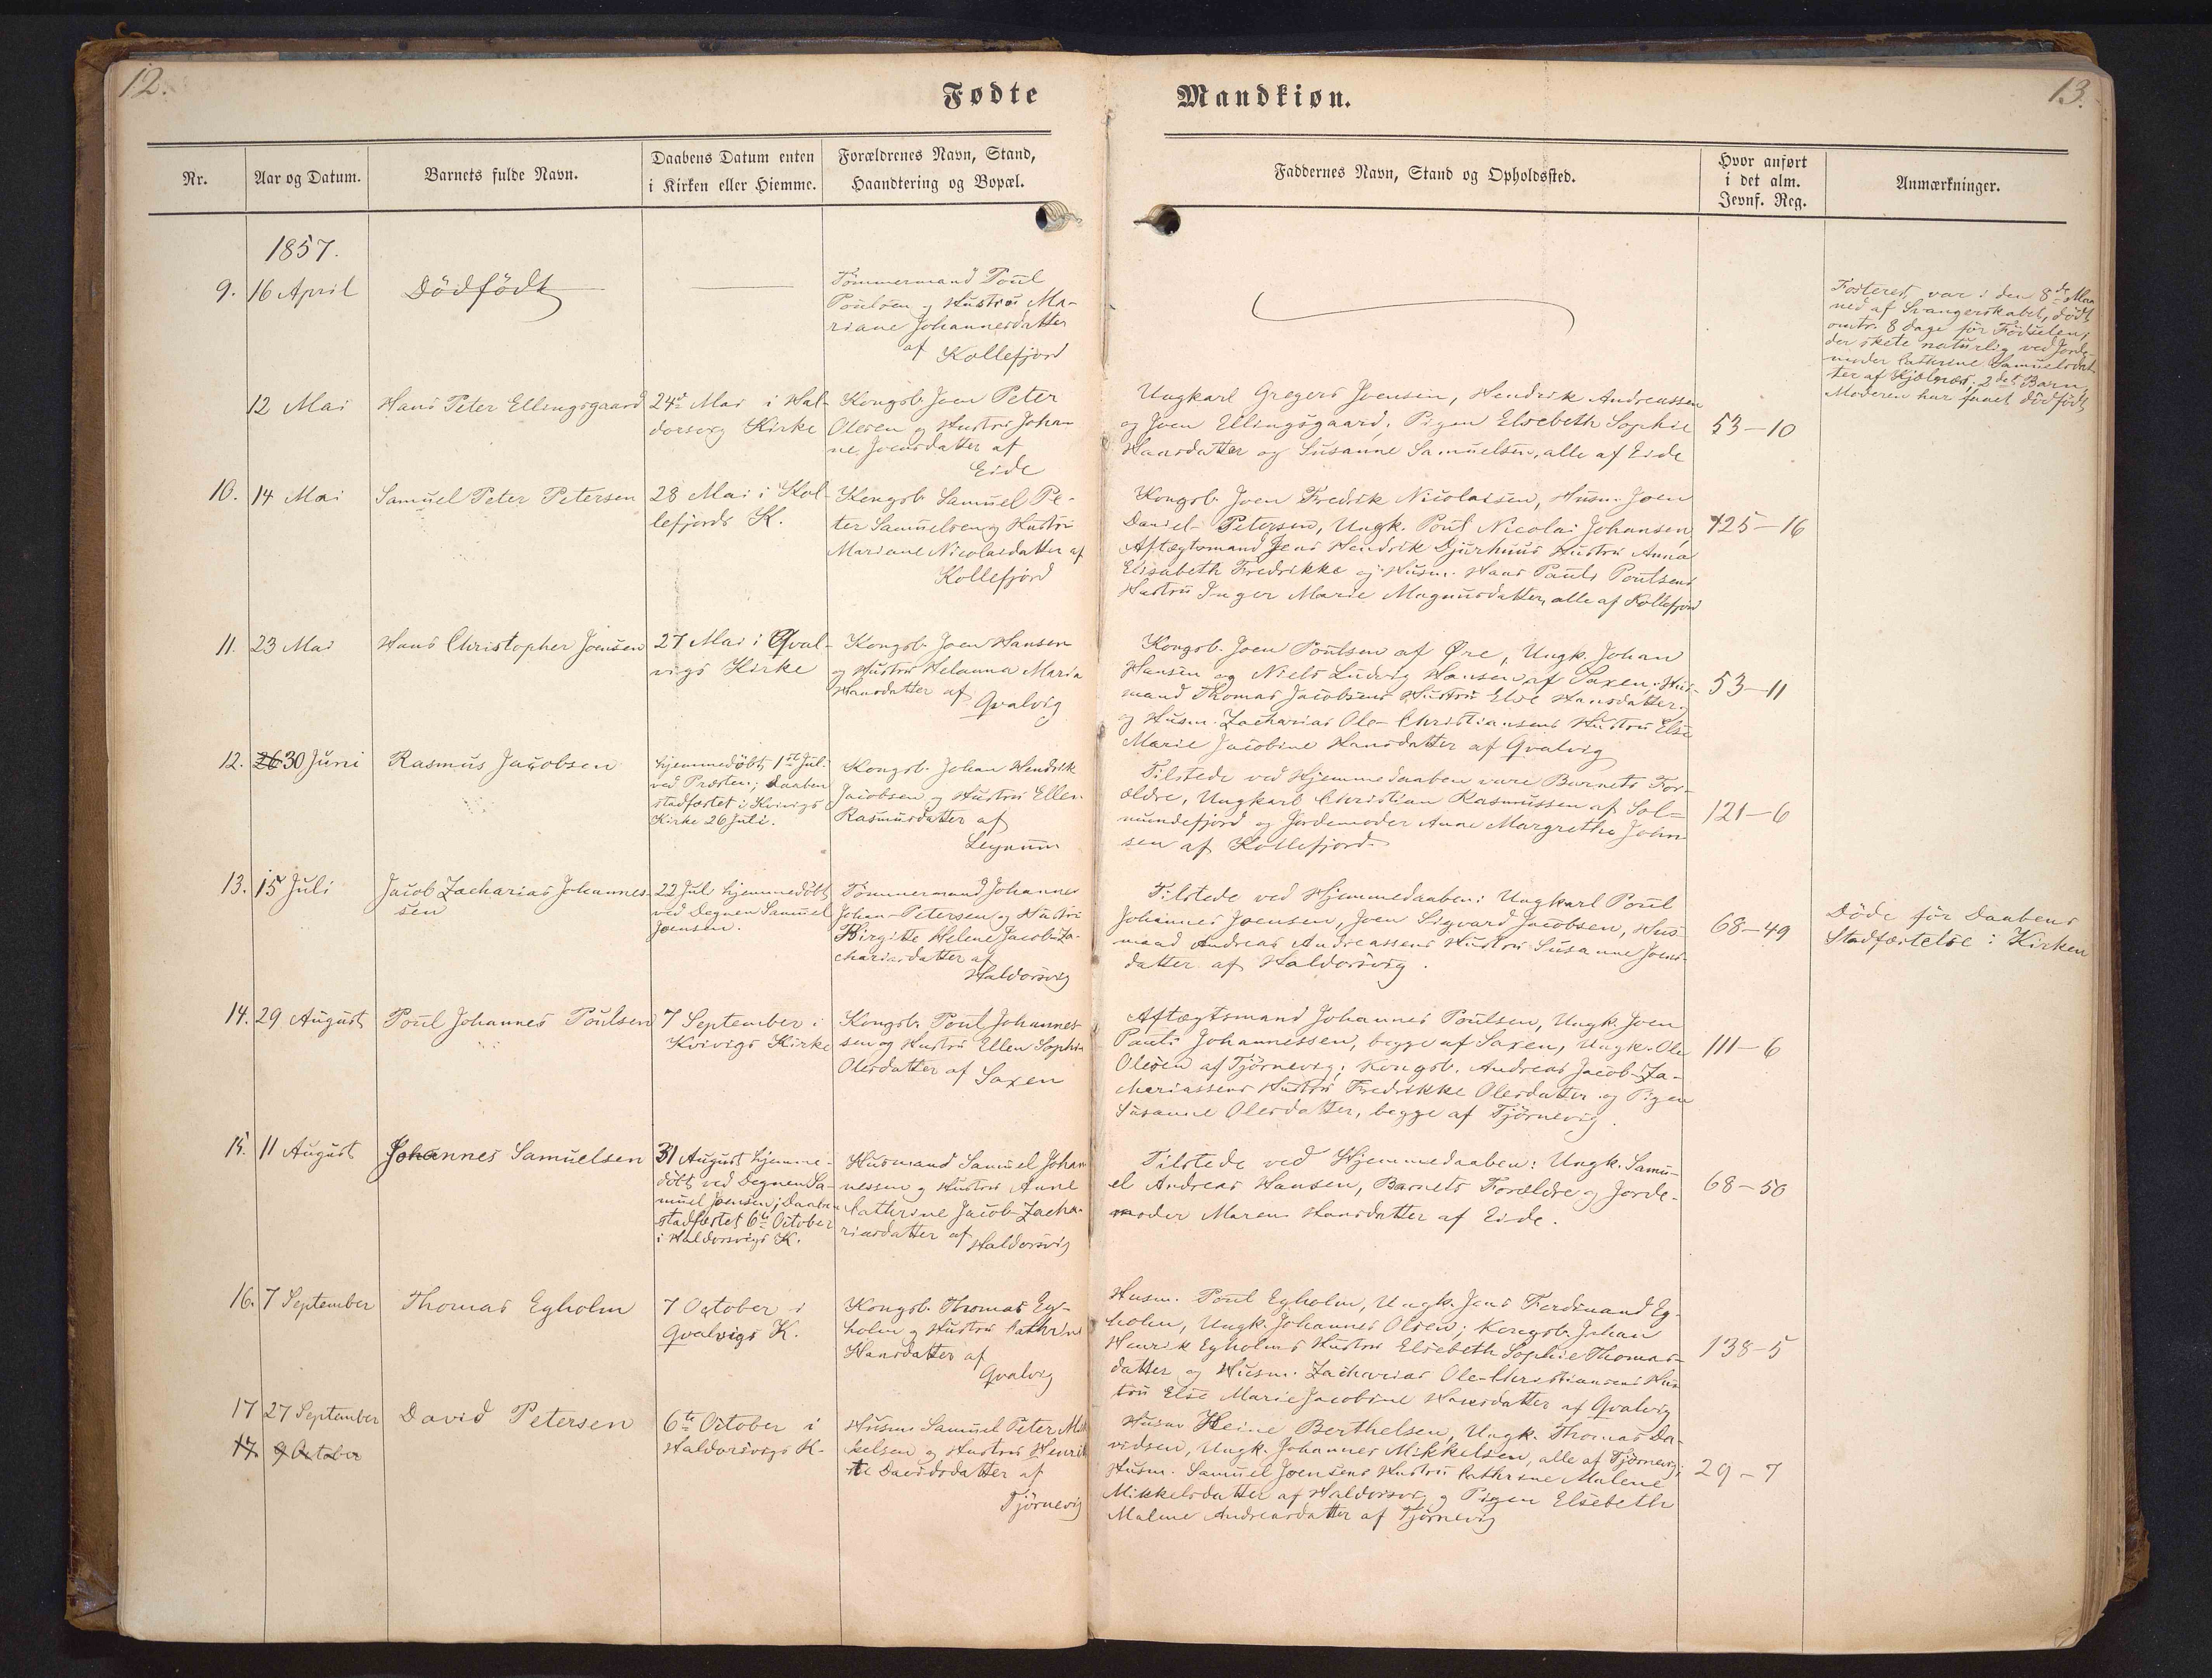 12.
Fødte
Nr.
Aar og Datum.
Barnets fulde Navn.
Daabens Datum enten
i Kirken eller Hiemme.
Forældrenes Navn, Stand,
Haandtering og Bopæl.
1857.
9.
16 April
Dödfödt
Tömmermand Poul
Poulsen og Hustru Ma-
riane Johannesdatter
af Kollefjord
12 Mai
Hans Peter Ellingsgaard
24de Mai i Hal-
dorsvig Kirke
Kongsb. Joen Peter
Olesen og Hustru Johan
ne Joensdatter af
Eide
10.
14 Mai
Samuel Peter Petersen
28 Mai i Kol-
lefjords K.
Kongsb. Samuel Pe-
ter Samuelsen og Hustru
Mariane Nicolaidatter af
Kollefjord
11.
23 Mai
Hans Christopher Joensen
27 Mai i Qval-
vigs Kirke
Kongsb. Joen Hansen
og Hustru Helanna Maria
Hansdatter af
Qvalvig
12.
26 30 Juni
Rasmus Jacobsen
hjemmedöbt 1ste Jul.
ved Præsten; Daaben
stadfæstet i Kvivigs
Kirke 26 Juli.
Kongsb. Johan Hendrik
Jacobsen og Hustru Ellen
Rasmusdatter af
Leynum
13.
15 Juli
Jacob Zacharias Johannes-
sen
22 Juli hjemmedöbt
ved Degnen Samuel
Joensen.
Tömmermand Johannes
Johan-Petersen og Hustru
Birgitte Helene Jacob-Za-
chariasdatter af
Haldorsvig
14.
29 August
Poul Johannes Poulsen
7 September i
Kvivigs Kirke
Kongsb. Poul Johannes-
sen og Hustru Ellen Sophie
Olesdatter af Saxen
15.
11 August
Johannes Samuelsen
31 August hjemme-
döbt ved Degnen Sa-
muel Joensen; Daaben
stadfæstet 6te October
i Haldorsvigs K.
Husmand Samuel Johan
nessen og Hustru Anne
Cathrine Jacob-Zacha-
riasdatter af Haldorsvig
16.
7 September
Thomas Egholm
7 October i
Qvalvigs K.
Kongsb. Thomas Eg-
holm og Hustru Cathrine
Hansdatter af
Qvalvig
17
27 September
David Petersen
6te October i
Haldorsvigs K.
Husm. Samuel Peter Mik
kelsen og Hustru Henrik
te Davidsdatter af
Tjörnevig
17.
9 October
13.
Mandkiøn.
Faddernes Navn, Stand og Opholdssted.
Hvor anført
i det alm.
Jevnf. Reg.
Anmærkninger.
Fosteret var i den 8de Maa
ned af Svangerskabet, dödt
omtr. 8 dage för Födselen,
der skete naturlig ved Jorde-
moder Cathrine Samuelsdat-
ter af Kjolnæs; 2det Barn
Moderen har faaet dödfödt
Ungkarl Gregers Joensen, Hendrik Andreassen
og Joen Ellingsgaard; Pigen Elsebeth Sophie
Hansdatter og Susanne Samuelsen, alle af Eide
53-10
Kongsb. Joen Fredrik Nicolaisen, Husm. Joen
Daniel Petersen, Ungk. Poul Nicolai Johansen,
Aftægtsmand Jens Hendrik Djurhuus Hustru Anna
Elisabeth Fredrikke og Husm. Hans Pauls Poulsens
Hustru Inger Marie Magnusdatter, alle af Kollefjord
125-16
Kongsb. Joen Poulsen af Øre, Ungk. Johan
Hansen og Niels Ludvig Hansen af Saxen; Hus-
mand Thomas Jacobsens Hustru Else Hansdatter
og Husm. Zacharias Ole-Christiansens Hustru Else
Marie Jacobine Hansdatter af Qvalvig
53-11
Tilstede ved Hjemmedaaben vare Barnets For-
ældre, Ungkarl Christian Rasmussen af Sol-
mundefjord og Jordemoder Anne Margrethe John-
sen af Kollefjord.
121-6
Tilstede ved Hjemmedaaben: Ungkarl Poul
Johannes Joensen, Joen Sigvard Jacobsen, Hus-
mand Andreas Andreassens Hustru Susanne Joens-
datter af Haldorsvig.
68-49
Döde för Daabens
Stadfæstelse i Kirken
Aftægtsmand Johannes Poulsen, Ungk. Joen
Pauli Johannessen, begge af Saxen, Ungk. Ole
Olesen af Tjörnevig; Kongsb. Andreas Jacob-Za-
chariassens Hustru Fredrikke Olesdatter og Pigen
Susanne Olesdatter, begge af Tjörnevig.
111-6
Tilstede ved Hjemmedaaben: Ungk. Samu-
el Andreas Hansen, Barnets Forældre og Jorde-
moder Maren Hansdatter af Eide.
68-50
Husm. Poul Egholm, Ungk. Jens Ferdinand Eg-
holm, Ungk. Johannes Olsen; Kongsb. Johan
Henrik Egholms Hustru Elsebeth Sophie Thomas-
datter og Husm. Zacharias Ole-Christiansens Hus
tru Else Marie Jacobine Hansdatter af Qvalvig
138-5
Husm Heine Berthelsen, Ungk. Thomas Da-
vidsen, Ungk. Johannes Mikkelsen, alle af Tjörnevig;
Husm. Samuel Joensens Hustru Cathrine Malene
Mikkelsdatter af Haldorsvig og Pigen Elsebeth
Malene Andreasdatter af Tjörnevig
29-7